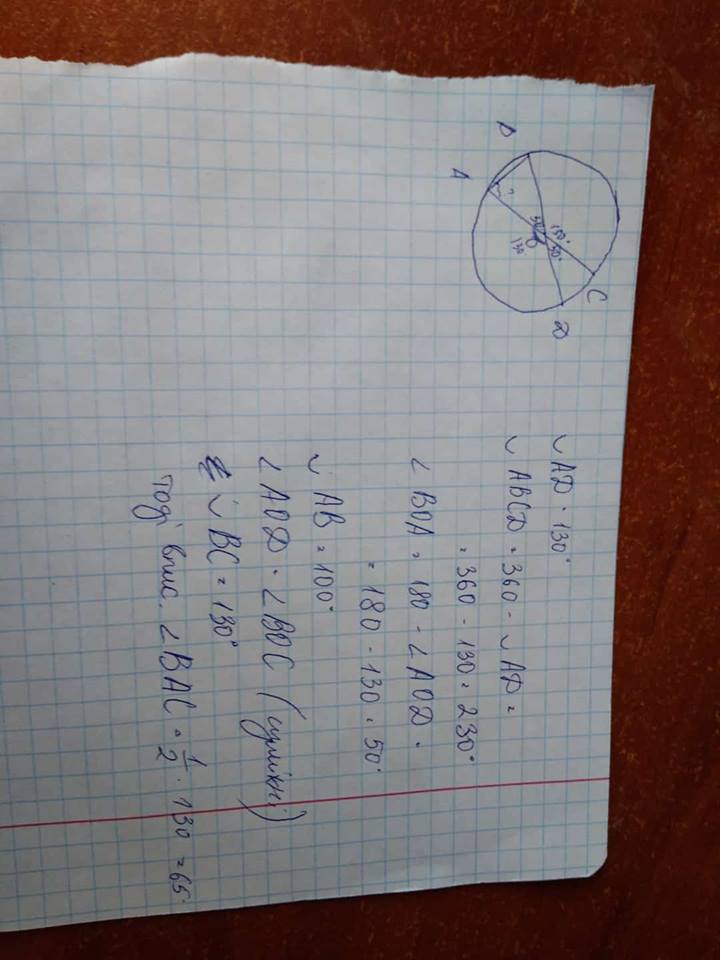 B
A
?
50°
130°
50°
O
130
C
D
◡ AD = 130°
◡ ABCD = 360 - ◡ AD =
= 360 - 130 = 230°
∠ BOA = 180 - ∠ AOD =
= 180 - 130 = 50°
◡ AB = 100°
∠ AOD = ∠ BOC (суміжні)
◡ BC = 130°
тоді впис. ∠ BAC = 1/2 · 130 = 65°